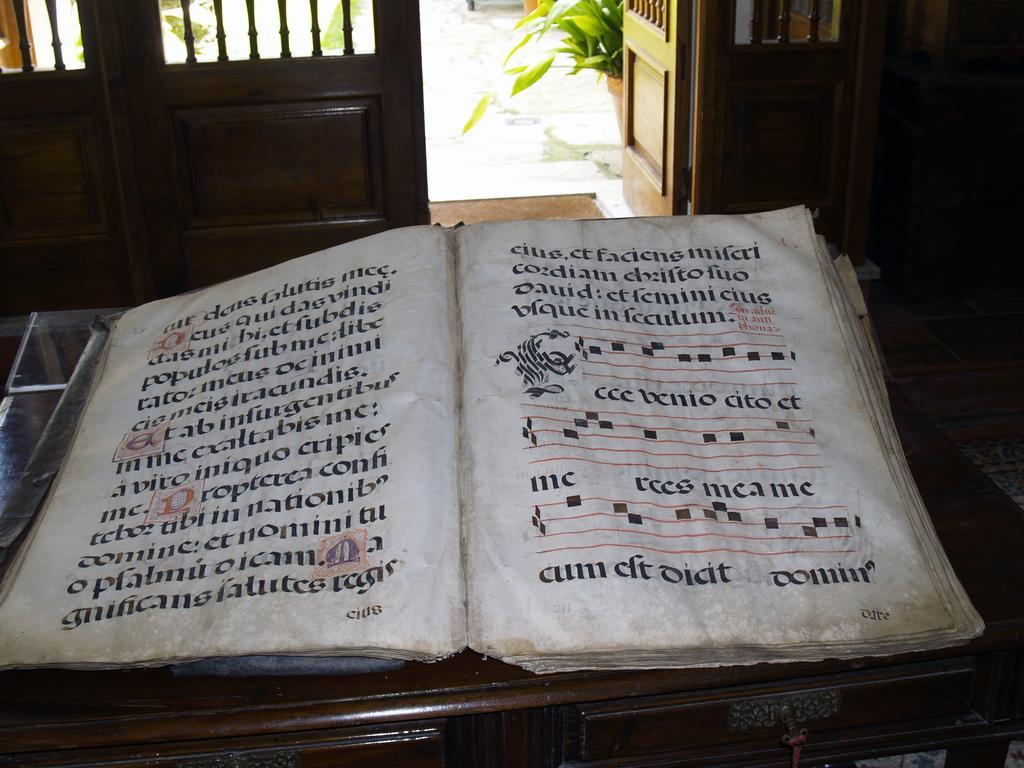 tur deus salutis mee.
Deus qui das vindi
ctas mihi, et subdis
populos sub me: libe
rator meus de inimi
cis meis iracundis.
Et ab insurgentibus
in me exaltabis me:
a viro iniquo eripies
me. Propterea confi
tebor tibi in nationibꝰ
domine: et nomini tu
o psalmū dicam. Ma
gnificans salutes regis
eius
eius, et faciens miseri
cordiam christo suo
David: et semini eius
vsque in seculum.
In adue
tu anti
phona
Ecce venio cito et
me rces mea me
cum est dicit domin⁹
dare